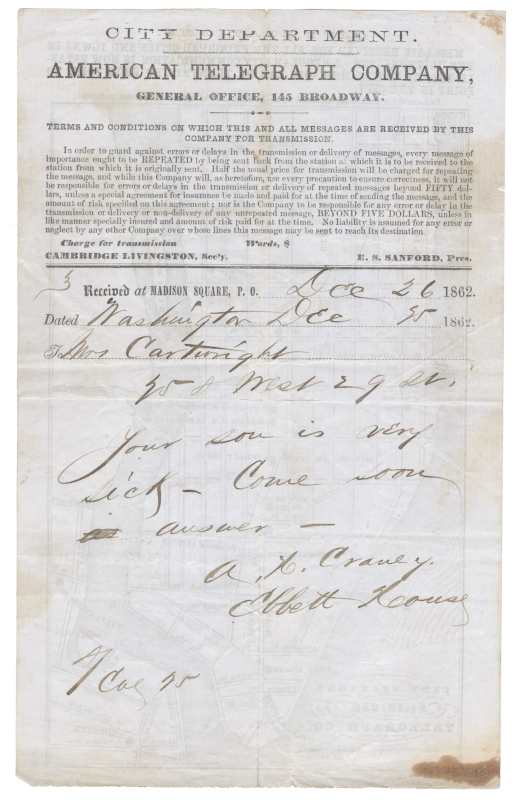 CITY DEPARTMENT.
AMERICAN TELEGRAPH COMPANY,
GENERAL OFFICE, 145 BROADWAY.
TERMS AND CONDITIONS ON WHICH THIS AND ALL MESSAGES ARE RECEIVED BY THIS
COMPANY FOR TRANSMISSION.
In order to guard against errors or delays in the transmission or delivery of messages, every message of
importance ought to be REPEATED by being sent back from the station at which it is to be received to the
station from which it is originally sent. Half the usual price for transmission will be charged for repeating
the message, and while this Company will, as heretofore, use every precaution to ensure correctness, it will not
be responsible for errors or delays in the transmission or delivery of repeated messages beyond FIFTY dol-
lars, unless a special agreement for insurance be made and paid for at the time of sending the message, and the
amount of risk specified on this agreement; nor is the Company to be responsible for any error or delay in the
transmission or delivery or non-delivery of any unrepeated message, BEYOND FIVE DOLLARS, unless in
like manner specially insured and amount of risk paid for at the time. No liability is assumed for any error or
neglect by any other Company over whose lines this message may be sent to reach its destination.
Charge for transmission Words, $
CAMBRIDGE LIVINGSTON, Sec'y. E. S. SANFORD, Pres.
3 Received at MADISON SQUARE, P. O. Dec 26 1862.
Dated Washington Dec 25 1862.
To Mrs Cartwright
West 29 St.
Your son is very
sick - Come soon
answer -
A. H. Craney.
Ebbett House
Col 25